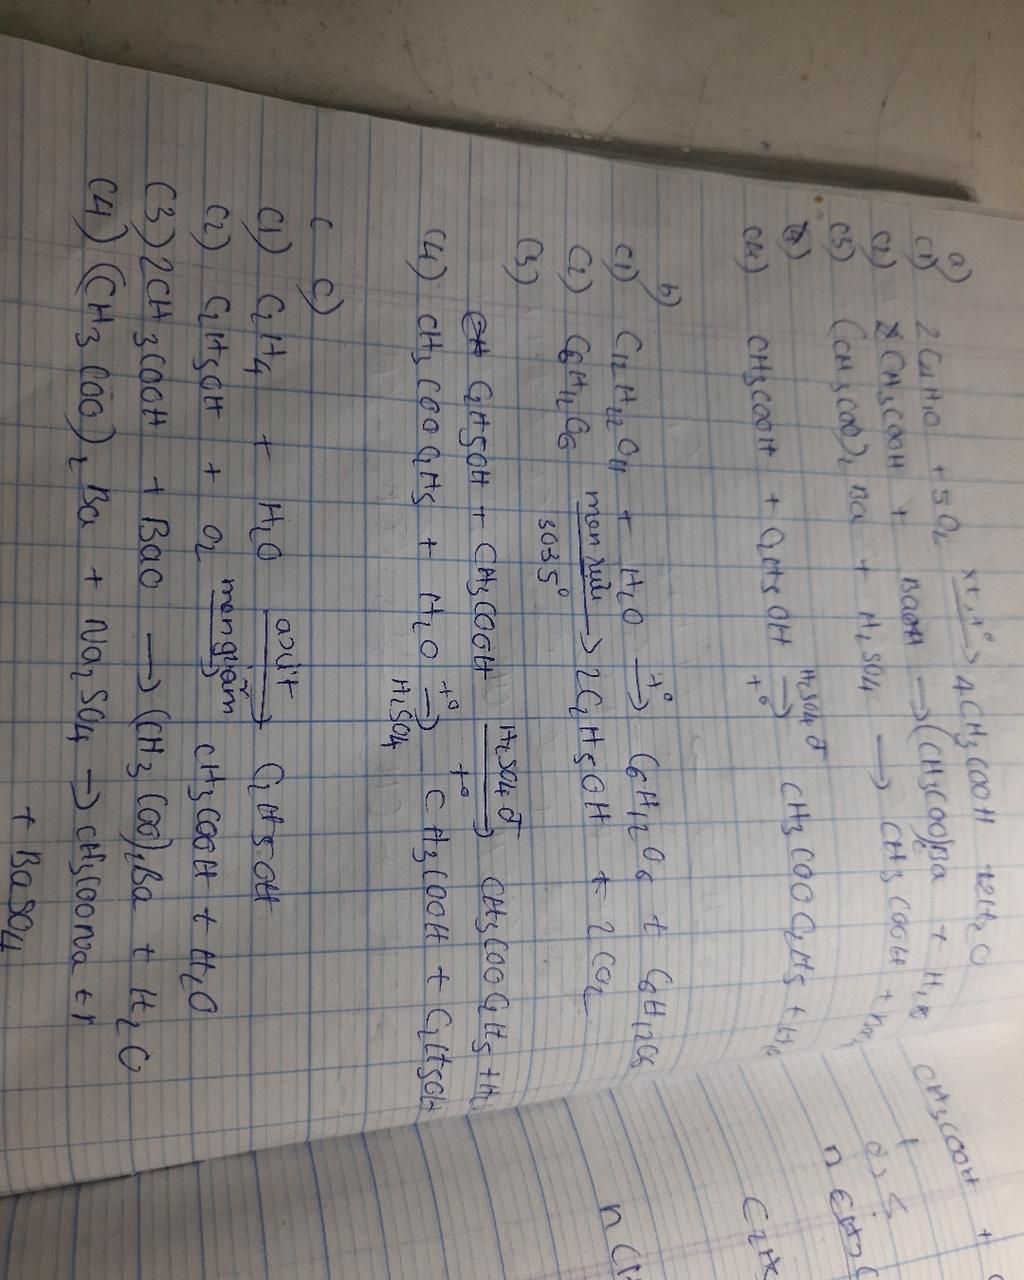 a)
(1) 2C4H10 + 5O2 xt, t° → 4CH3COOH + 2H2O
(2) CH3COOH + BaOH → (CH3COO)2Ba + H2O
(3) (CH3COO)2 Ba + H2SO4 → CH3COOH +
(4) CH3COOH + C2H5OH H2SO4 đ → t° CH3COOC2H5 + H2O
b)
(1) C12H22O11 + H2O t° → C6H12O6 + C6H12O6
(2) C6H12O6 men rượu → 3035° 2C2H5OH + 2CO2
(3)
C2H5OH + CH3COOH H2SO4 đ → t° CH3COOC2H5 + H2
(4) CH3COOC2H5 + H2O t° → H2SO4 CH3COOH + C2H5OH
c)
(1) C2H4 + H2O axit → C2H5OH
(2) C2H5OH + O2 men giấm → CH3COOH + H2O
(3) 2CH3COOH + BaO → (CH3COO)2Ba + H2O
(4) (CH3COO)2 Ba + Na2SO4 → CH3COONa +
+ BaSO4
CH3COOH +